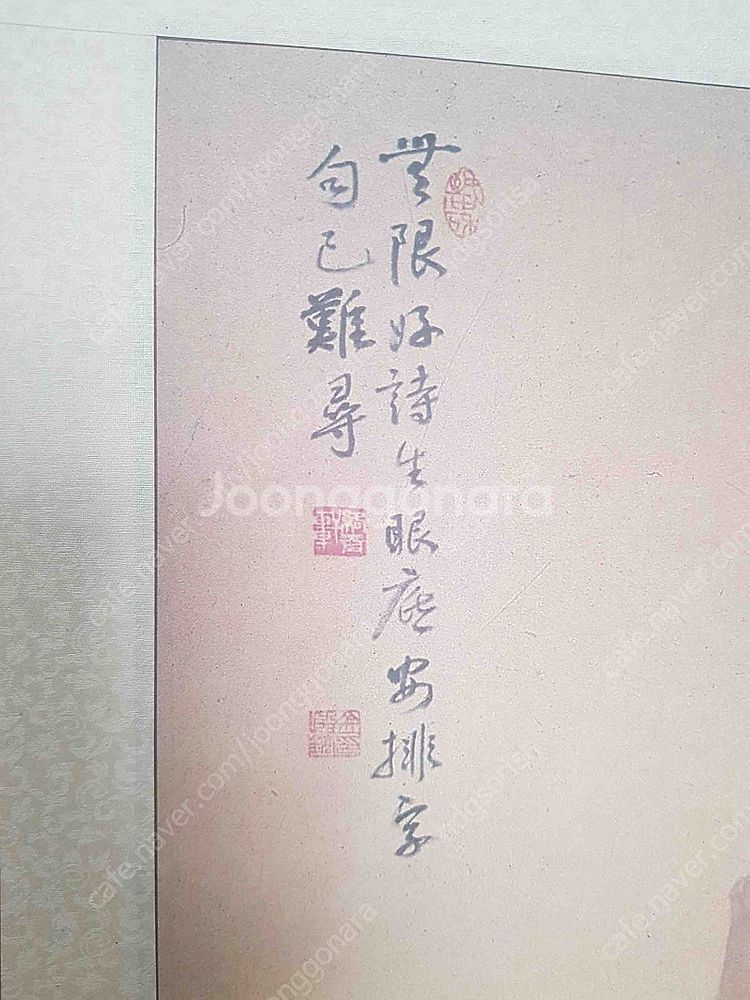 無限好詩生眼底安排字
句已難尋
Joonggonara
cafe.naver.com/joonggonara